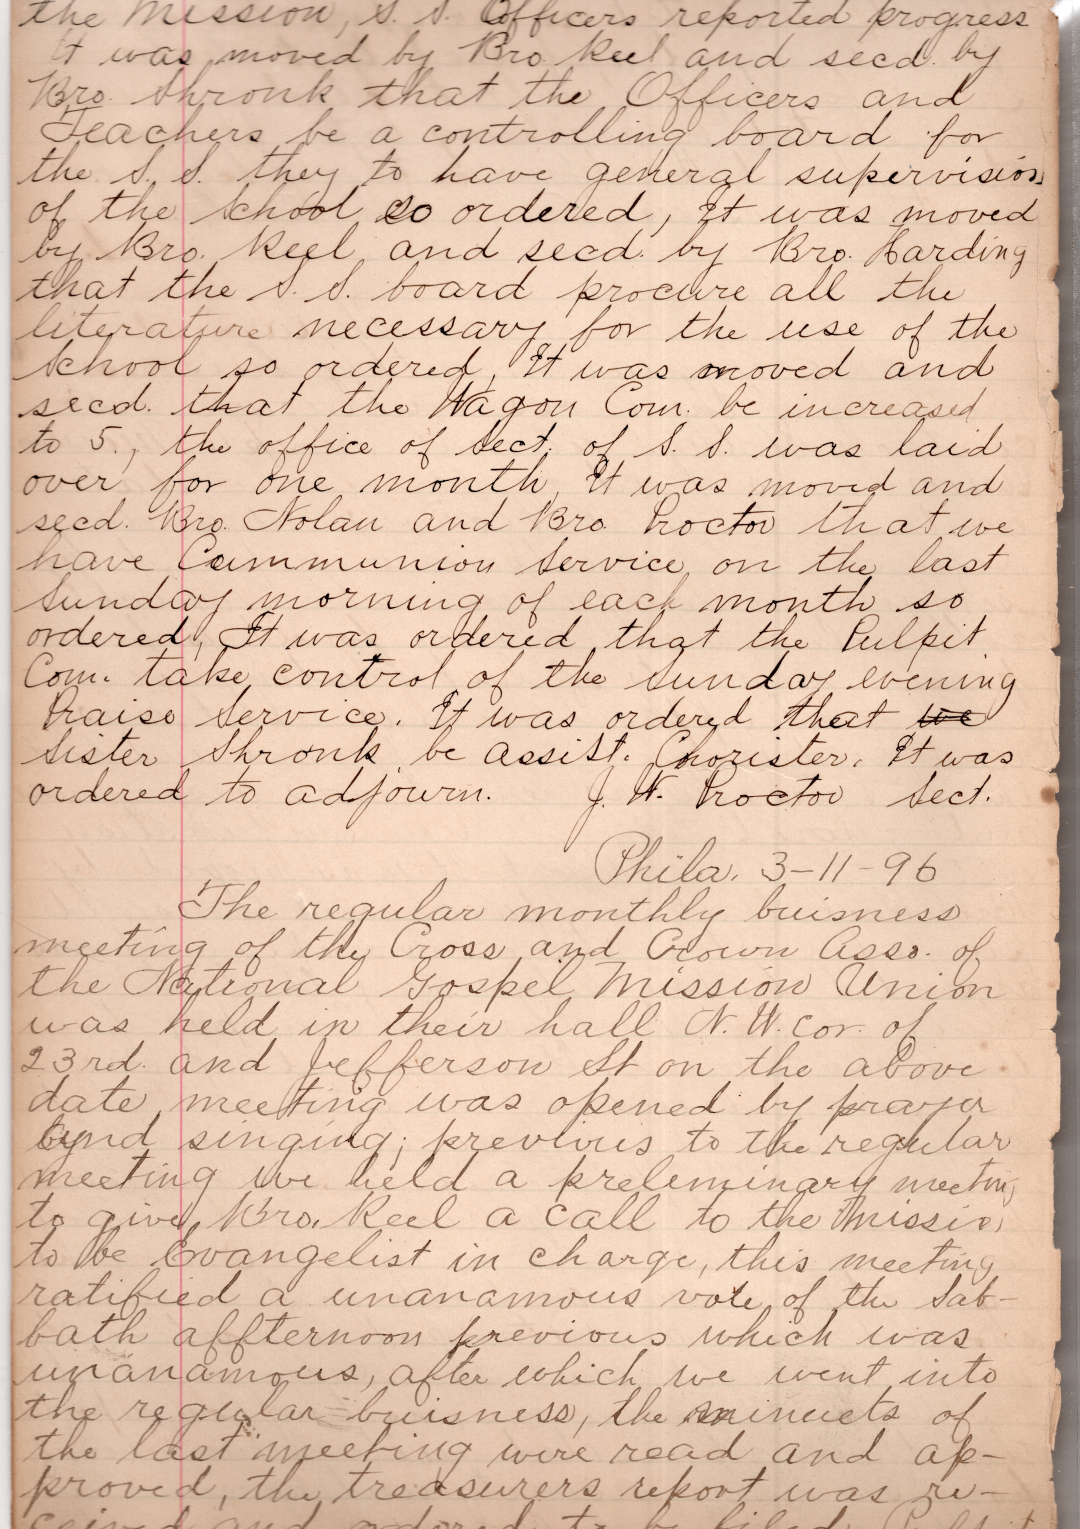 the Mission, S. S. Officers reported progress
It was moved by Bro Keel and secd. by
Bro. Shronk that the Officers and
Teachers be a controlling board for
the S. S. they to have general supervision
of the School so ordered, It was moved
by Bro. Keel and secd. by Bro. Harding
that the S. S. board procure all the
literature necessary for the use of the
School so ordered, It was moved and
secd. that the Wagon Com. be increased
to 5., the office of Sect. of S. S. was laid
over for one month, It was moved and
secd. Bro. Nolan and Bro. Proctor that we
have Communion Service on the last
Sunday morning of each month so
ordered, It was ordered that the Pulpit
Com. take control of the Sunday evening
Praise Service. It was ordered that we
Sister Shronk be assist. Chorister. It was
ordered to adjourn. J. W. Proctor Sect.
Phila. 3-11-96
The regular monthly buisness
meeting of the Cross and Crown Asso. of
the National Gospel Mission Union
was held in their hall N. W. cor. of
23rd. and Jefferson St on the above
date, meeting was opened by prayer
and singing; previous to the regular
meeting we held a preleminary meeting
to give Bro. Keel a call to the Mission
to be Evangelist in charge, this meeting
ratified a unanamous vote of the Sab-
bath affternoon previous which was
unanamous, after which we went into
the regular buisness, the minuets of
the last meeting were read and ap-
proved, the treasurers report was re-
ceived and ordered to be filed,